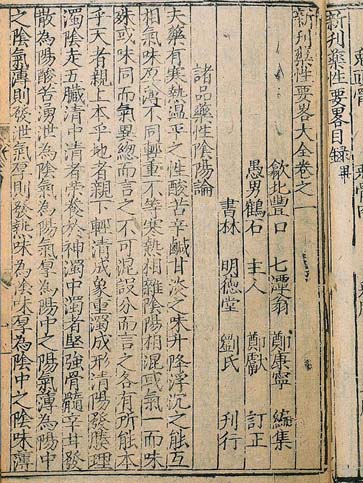 新刊藥性要畧目録畢
新刊藥性要畧大全卷之
歙北豐口 七潭翁 鄭康寧 編集
愚男鶴石 主人 鄭獻 訂正
書林 明德堂 劉氏 刊行
諸品藥性陰陽論
夫藥有寒熱溫平之性酸苦辛鹹甘淡之味升降浮沉之能互
相氣味厚薄不同輕重不等寒熱相雜陰陽相混或氣一而味
殊或味同而氣異總而言之不可混誤分而言之各有所能本
乎天者親上本乎地者親下輕清成象重濁成形清陽發腠理
濁陰走五臟清中清者榮養於神濁中濁者堅強骨髓辛甘發
散為陽酸苦湧泄為陰氣為陽氣厚為陽中之陽氣薄為陽中
之陰氣薄則發泄氣厚則發熱味為陰味厚為陰中之陰味薄